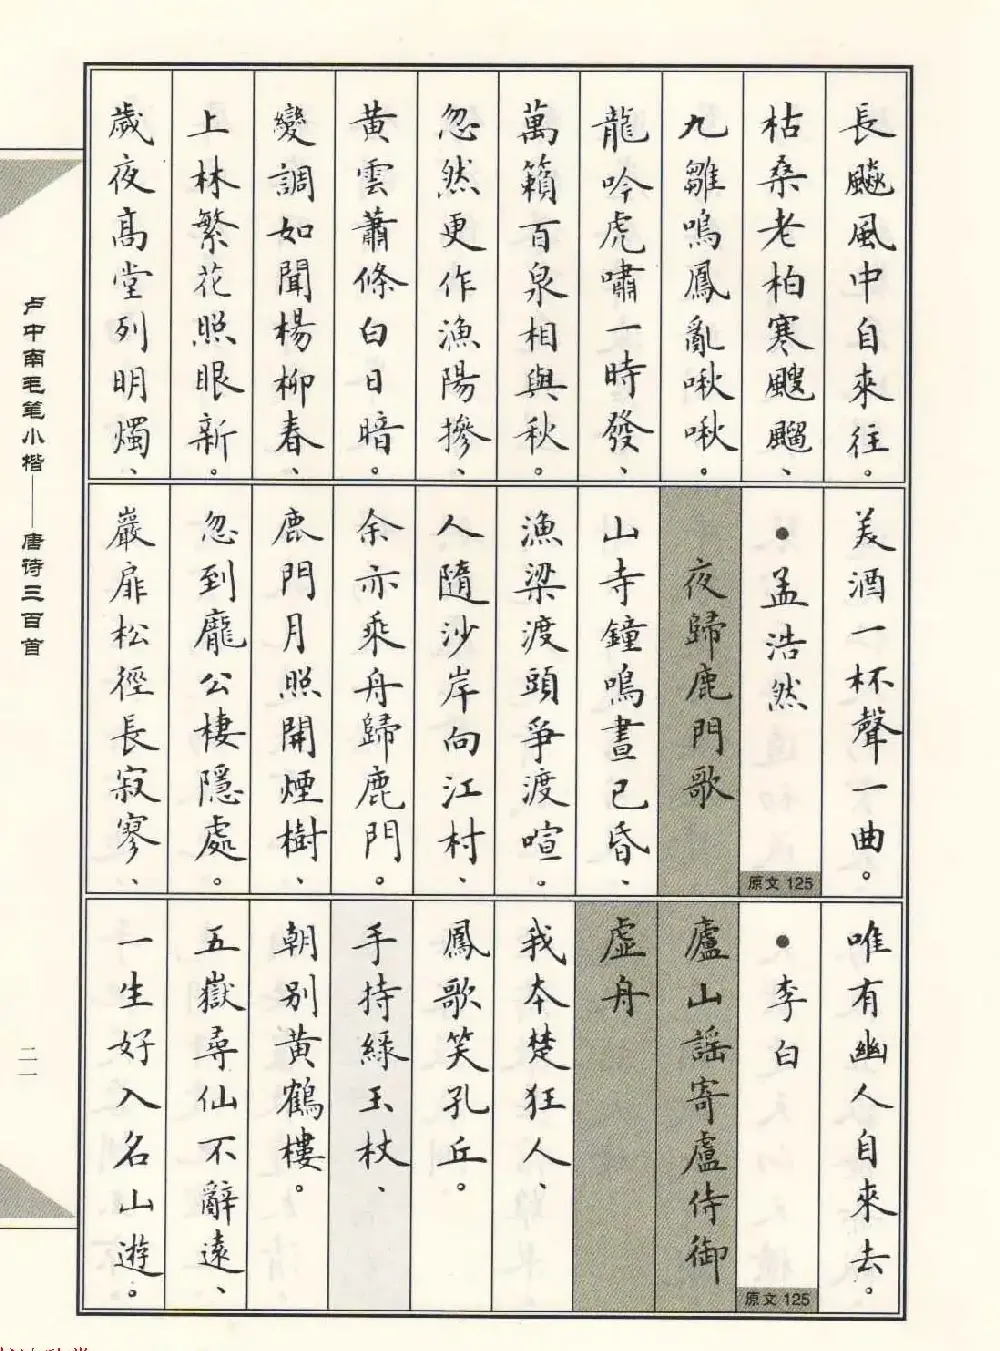 長飈風中自來往。
枯桑老柏寒颼飀、
九雛鳴鳳亂啾啾。
龍吟虎嘯一時發、
萬籟百泉相與秋。
忽然更作漁陽摻、
黃雲蕭條白日暗。
變調如聞楊柳春、
上林繁花照眼新。
歲夜高堂列明燭、
美酒一杯聲一曲。
●孟浩然
原文 125
夜歸鹿門歌
山寺鐘鳴晝已昏、
漁梁渡頭爭渡喧。
人隨沙岸向江村、
余亦乘舟歸鹿門。
鹿門月照開煙樹、
忽到龐公棲隱處。
巖扉松徑長寂寥、
唯有幽人自來去。
●李白
原文 125
廬山謡寄盧侍御
虛舟
我本楚狂人、
鳳歌笑孔丘。
手持緑玉杖、
朝别黃鶴樓。
五嶽尋仙不辭遠、
一生好入名山遊。
卢中南毛笔小楷——唐诗三百首
二一